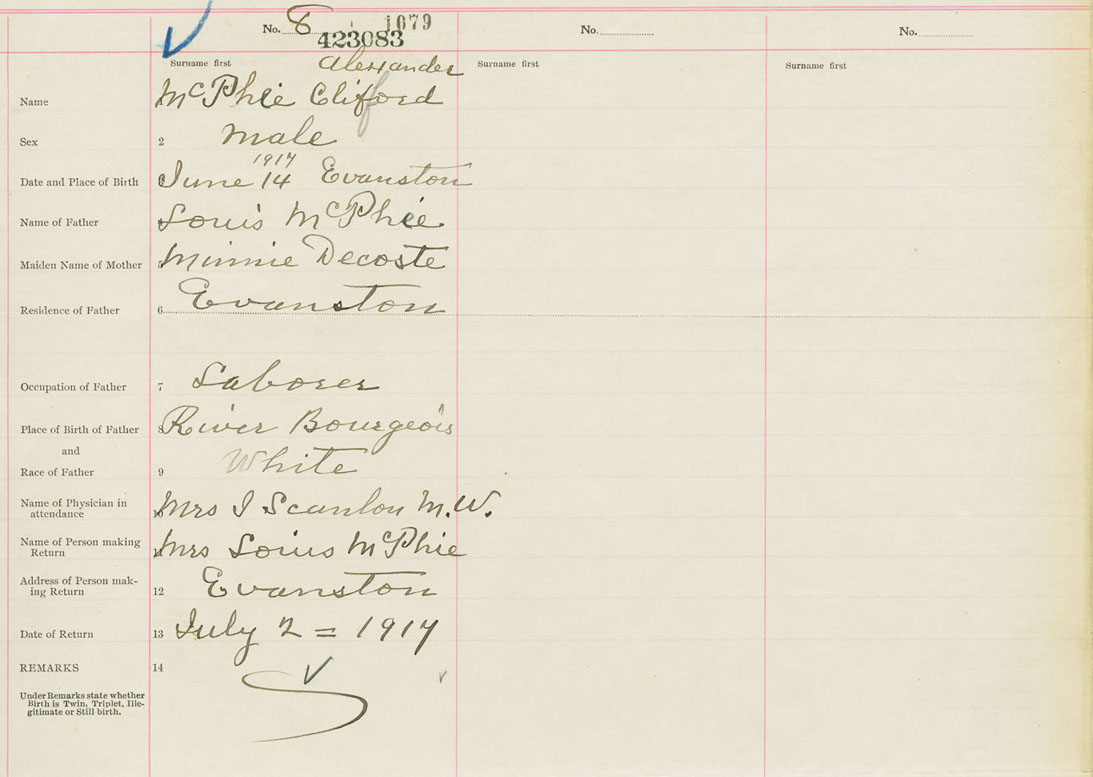 No. 8 1079
423083
No.
No.
Surname first
Surname first
Surname first
Alexander
Name McPhie Clifford
Sex 2 Male
1917
Date and Place of Birth June 14 Evanston
Name of Father Louis McPhie
Maiden Name of Mother Minnie Decoste
Residence of Father 6 Evanston
Occupation of Father 7 Laborer
Place of Birth of Father 8 River Bourgeois
and
Race of Father 9 White
Name of Physician in
attendance Mrs J Scanlon M.W.
Name of Person making
Return Mrs Louis McPhie
Address of Person mak-
ing Return 12 Evanston
Date of Return 13 July 2 = 1917
REMARKS 14
Under Remarks state whether
Birth is Twin, Triplet, Ille-
gitimate or Still birth.